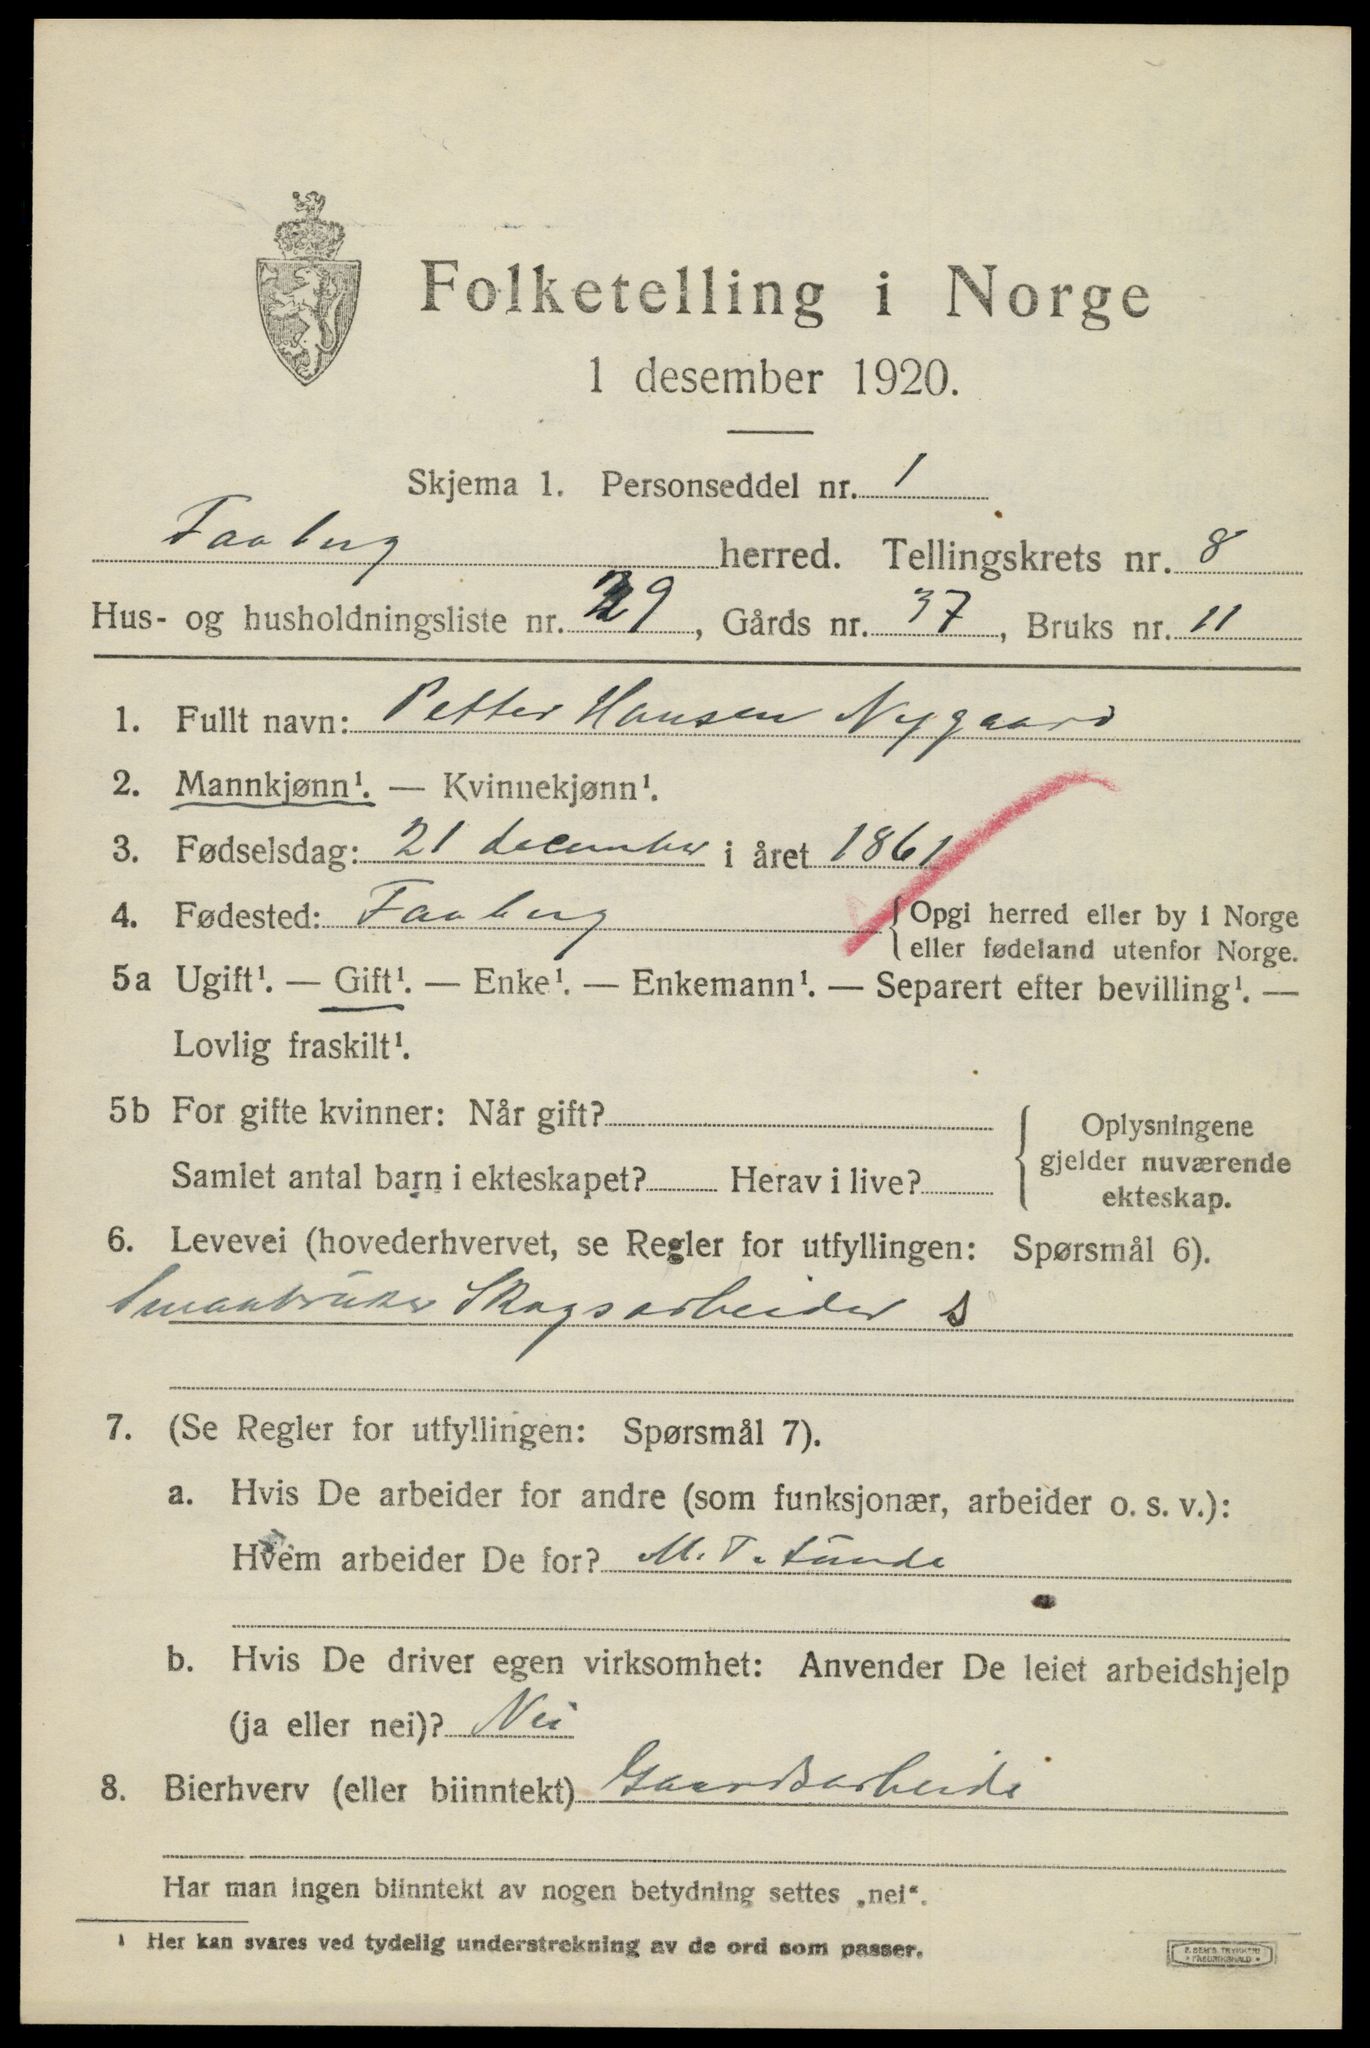 Folketelling i Norge
1 desember 1920.
Skjema 1. Personseddel nr. 1
Faaberg herred. Tellingskrets nr. 8
Hus- og husholdningsliste nr. 29, Gårds nr. 37, Bruks nr. 11
1. Fullt navn: Petter Hansen Nygaard
2. Mannkjønn¹. — Kvinnekjønn¹.
3. Fødselsdag: 21 december i året 1861
4. Fødested: Faaberg {Opgi herred eller by i Norge
eller fødeland utenfor Norge.
5a Ugift¹. — Gift¹. — Enke¹. — Enkemann¹. — Separert efter bevilling¹. —
Lovlig fraskilt¹.
5b For gifte kvinner: Når gift?
Samlet antal barn i ekteskapet? Herav i live?
Oplysningene
gjelder nuværende
ekteskap.
6. Levevei (hovederhvervet, se Regler for utfyllingen: Spørsmål 6).
Smaabruker Skogsarbeider s
7. (Se Regler for utfyllingen: Spørsmål 7).
a. Hvis De arbeider for andre (som funksjonær, arbeider o. s. v.):
Hvem arbeider De for? M. T. Lunde
b. Hvis De driver egen virksomhet: Anvender De leiet arbeidshjelp
(ja eller nei)? Nei
8. Bierhverv (eller biinntekt) Gaardsarbeide
Har man ingen biinntekt av nogen betydning settes „nei“.
¹ Her kan svares ved tydelig understrekning av de ord som passer.
FREDRIKSHALD